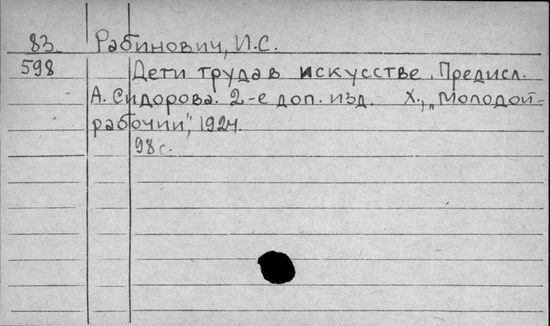 83 Рабинович, И.С.
598 Дети труда в искусстве. Предисл.
А. Сидорова. 2-е доп. изд. Х., „Молодой
рабочий", 1924.
98 с.